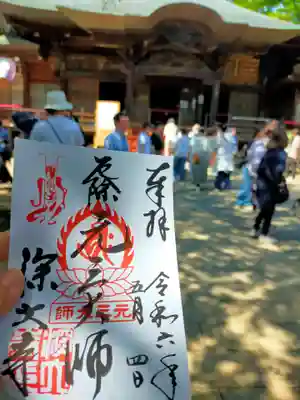 奉拝
令和六年
五月四日
元三大師
元三大師
深大寺